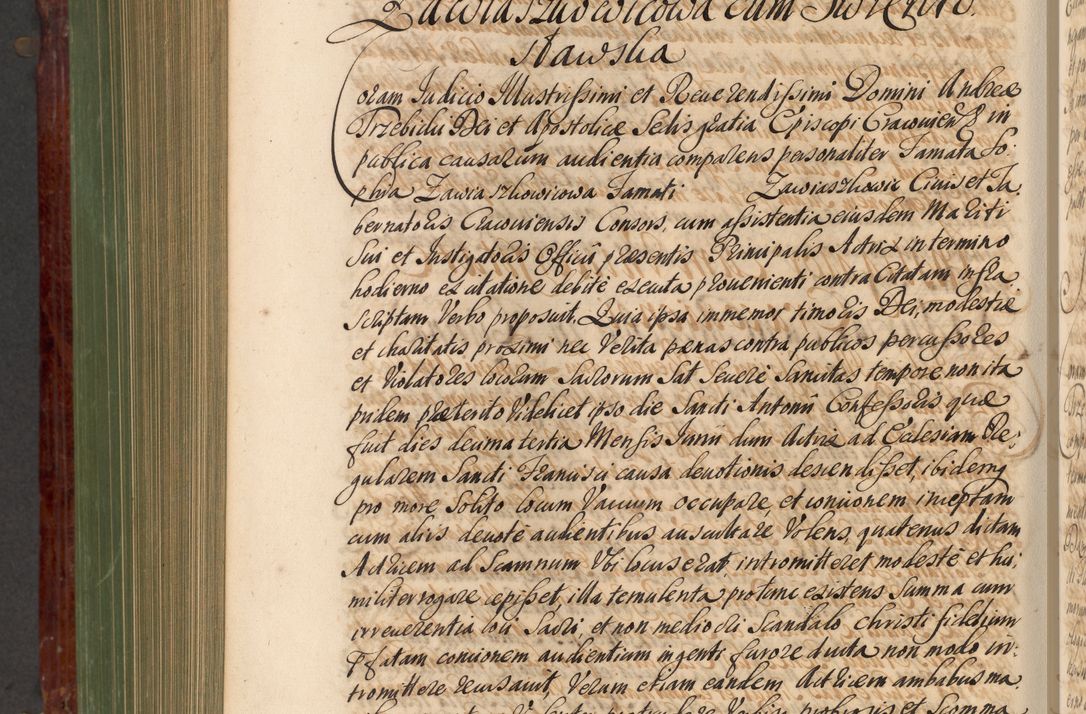 Zawiaszkowicowa cum
stawska
Coram Judicio Illustrissimi et Reuerendissimi Domini Andreæ
Trzebicki Dei et Apostolicæ Sedis gratia Episcopi Cracouien in
publica causarum audientia comparens personaliter Famata So:
phia Zawiaszkowicowa Famati Zawiaszkowic Ciuis et Ta:
bernatoris Cracouiensis Consors, cum assistentia eiusdem Mariti
Sui et Instigatoris Officii præsentis Principalis Actrix in termino
hodierno ex citatione debite executa proueniénti contra Citatam infra
scriptam Verbo proposuit, Quia ipsa immemor timoris Dei, modestiæ
et charitatis proximi nec Verita pænas contra publicos percussores
et Violatores locorum Sacrorum Sat Seuerè Sancitas tempore non ita
pridem præterito Videlicet ipso die Sancti Antonii Confessoris quæ
fuit dies decima tertia Mensis Junii dum Actrix ad Ecclesiam Re:
gularem Sancti Francisci causa deuotionis descendisset, ibidemq
pro more Solito locum Vacuum occupare, et concionem inceptam
cum aliis deuotè audientibus auscultare Volens, quatenus dictam
Actricem ad Scamnum Vbi locus erat, intromitteret modestè et hu:
militer rogare cepisset, illa temulenta protunc existens Summa cum
irreuerentia loci Sacri, et non mediocri Scandalo Christi fidelium
Pfatam concionem audientium ingenti furore ducta non modo in:
tromittere recusauit, Verum etiam eandem Actricem ambabus ma:
et Scomma